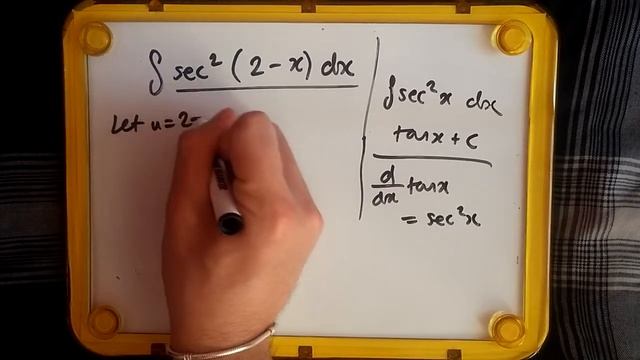 ∫ sec² (2 - x) dx
Let u = 2 -
∫ sec² x dx
tan x + c
d/dx tan x
= sec² x